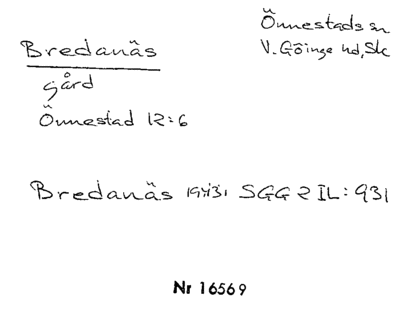 Önnestads sn
V. Göinge hd, Sk
Bredanäs
gård
Önnestad 12:6
Bredanäs 1943, SGG 2 IL: 931
Nr 16569